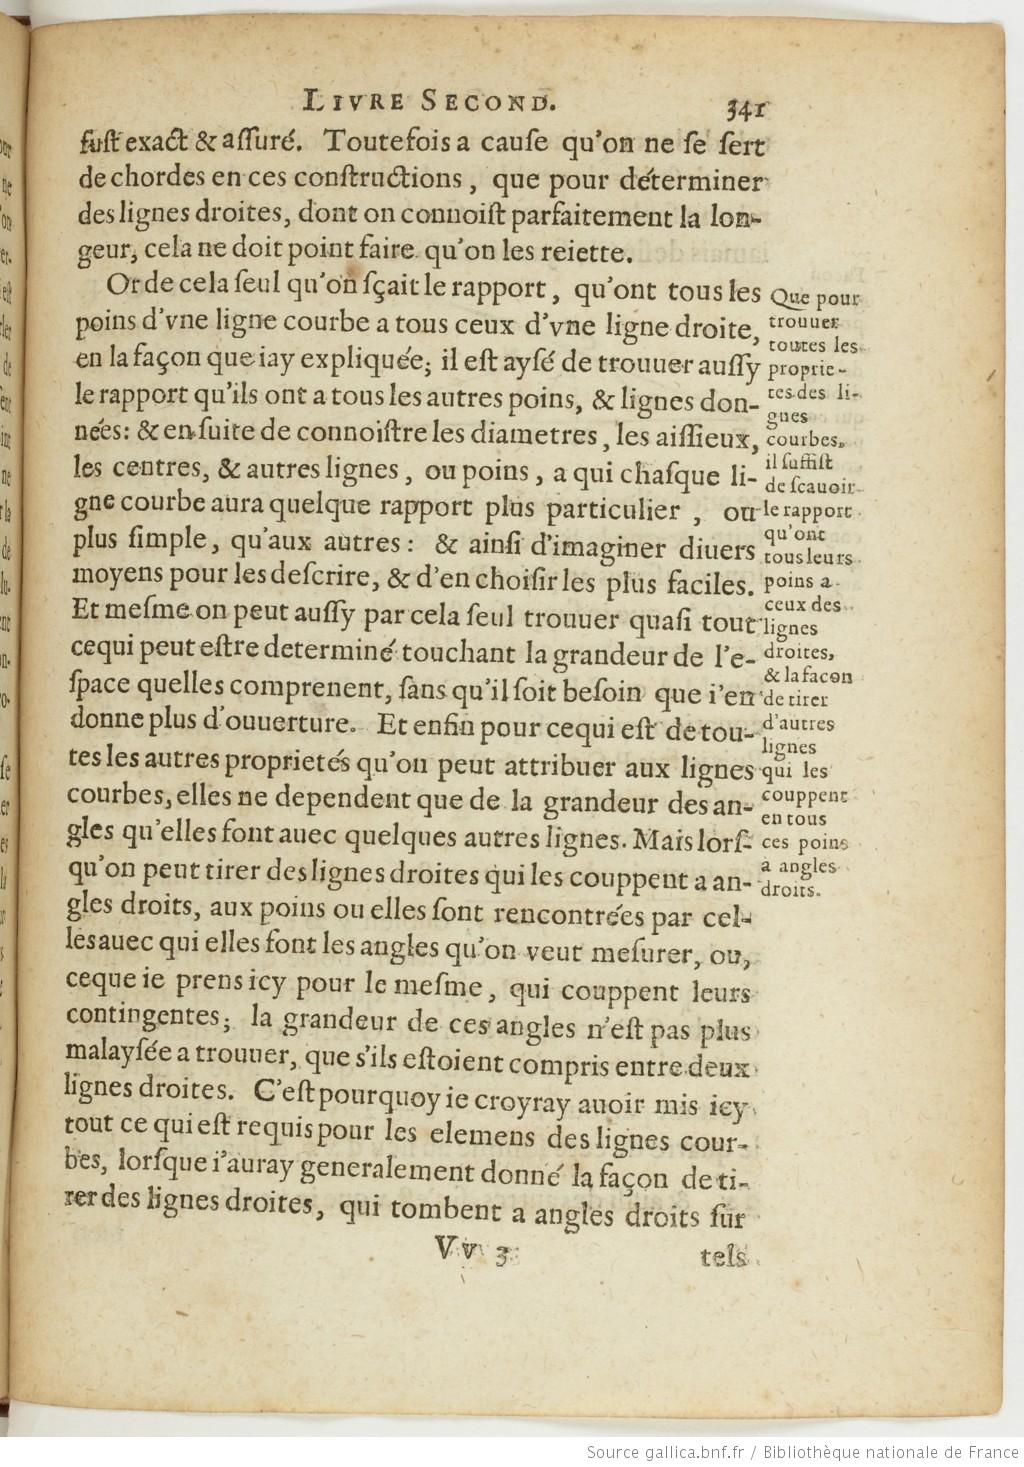 LIVRE SECOND. 341
fust exact & assuré. Toutefois a cause qu'on ne se sert
de chordes en ces constructions, que pour déterminer
des lignes droites, dont on connoist parfaitement la lon-
geur, cela ne doit point faire qu'on les reiette.
Or de cela seul qu'on sçait le rapport, qu'ont tous les
poins d'vne ligne courbe a tous ceux d'vne ligne droite,
en la façon que iay expliquée; il est aysé de trouuer aussy
le rapport qu'ils ont a tous les autres poins, & lignes don-
nées: & en suite de connoistre les diametres, les aissieux,
les centres, & autres lignes, ou poins, a qui chasque li-
gne courbe aura quelque rapport plus particulier, ou
plus simple, qu'aux autres: & ainsi d'imaginer diuers
moyens pour les descrire, & d'en choisir les plus faciles.
Et mesme on peut aussy par cela seul trouuer quasi tout
cequi peut estre determiné touchant la grandeur de l'e-
space quelles comprenent, sans qu'il soit besoin que i'en
donne plus d'ouuerture. Et enfin pour cequi est de tou-
tes les autres proprietés qu'on peut attribuer aux lignes
courbes, elles ne dependent que de la grandeur des an-
gles qu'elles font auec quelques autres lignes. Mais lors-
qu'on peut tirer des lignes droites qui les couppent a an-
gles droits, aux poins ou elles sont rencontrées par cel-
les auec qui elles font les angles qu'on veut mesurer, ou,
ceque ie prens icy pour le mesme, qui couppent leurs
contingentes; la grandeur de ces angles n'est pas plus
malaysée a trouuer, que s'ils estoient compris entre deux
lignes droites. C'est pourquoy ie croyray auoir mis icy
tout ce qui est requis pour les elemens des lignes cour-
bes, lorsque i'auray generalement donné la façon de ti-
rer des lignes droites, qui tombent a angles droits sur
Vv 3 tels
Que pour
trouuer
toutes les
proprie-
tes des li-
gnes
courbes,
il suffist
de scauoir
le rapport
qu'ont
tous leurs
poins a
ceux des
lignes
droites,
& la facon
de tirer
d'autres
lignes
qui les
couppent
en tous
ces poins
a angles
droits.
Source gallica.bnf.fr / Bibliothèque nationale de France